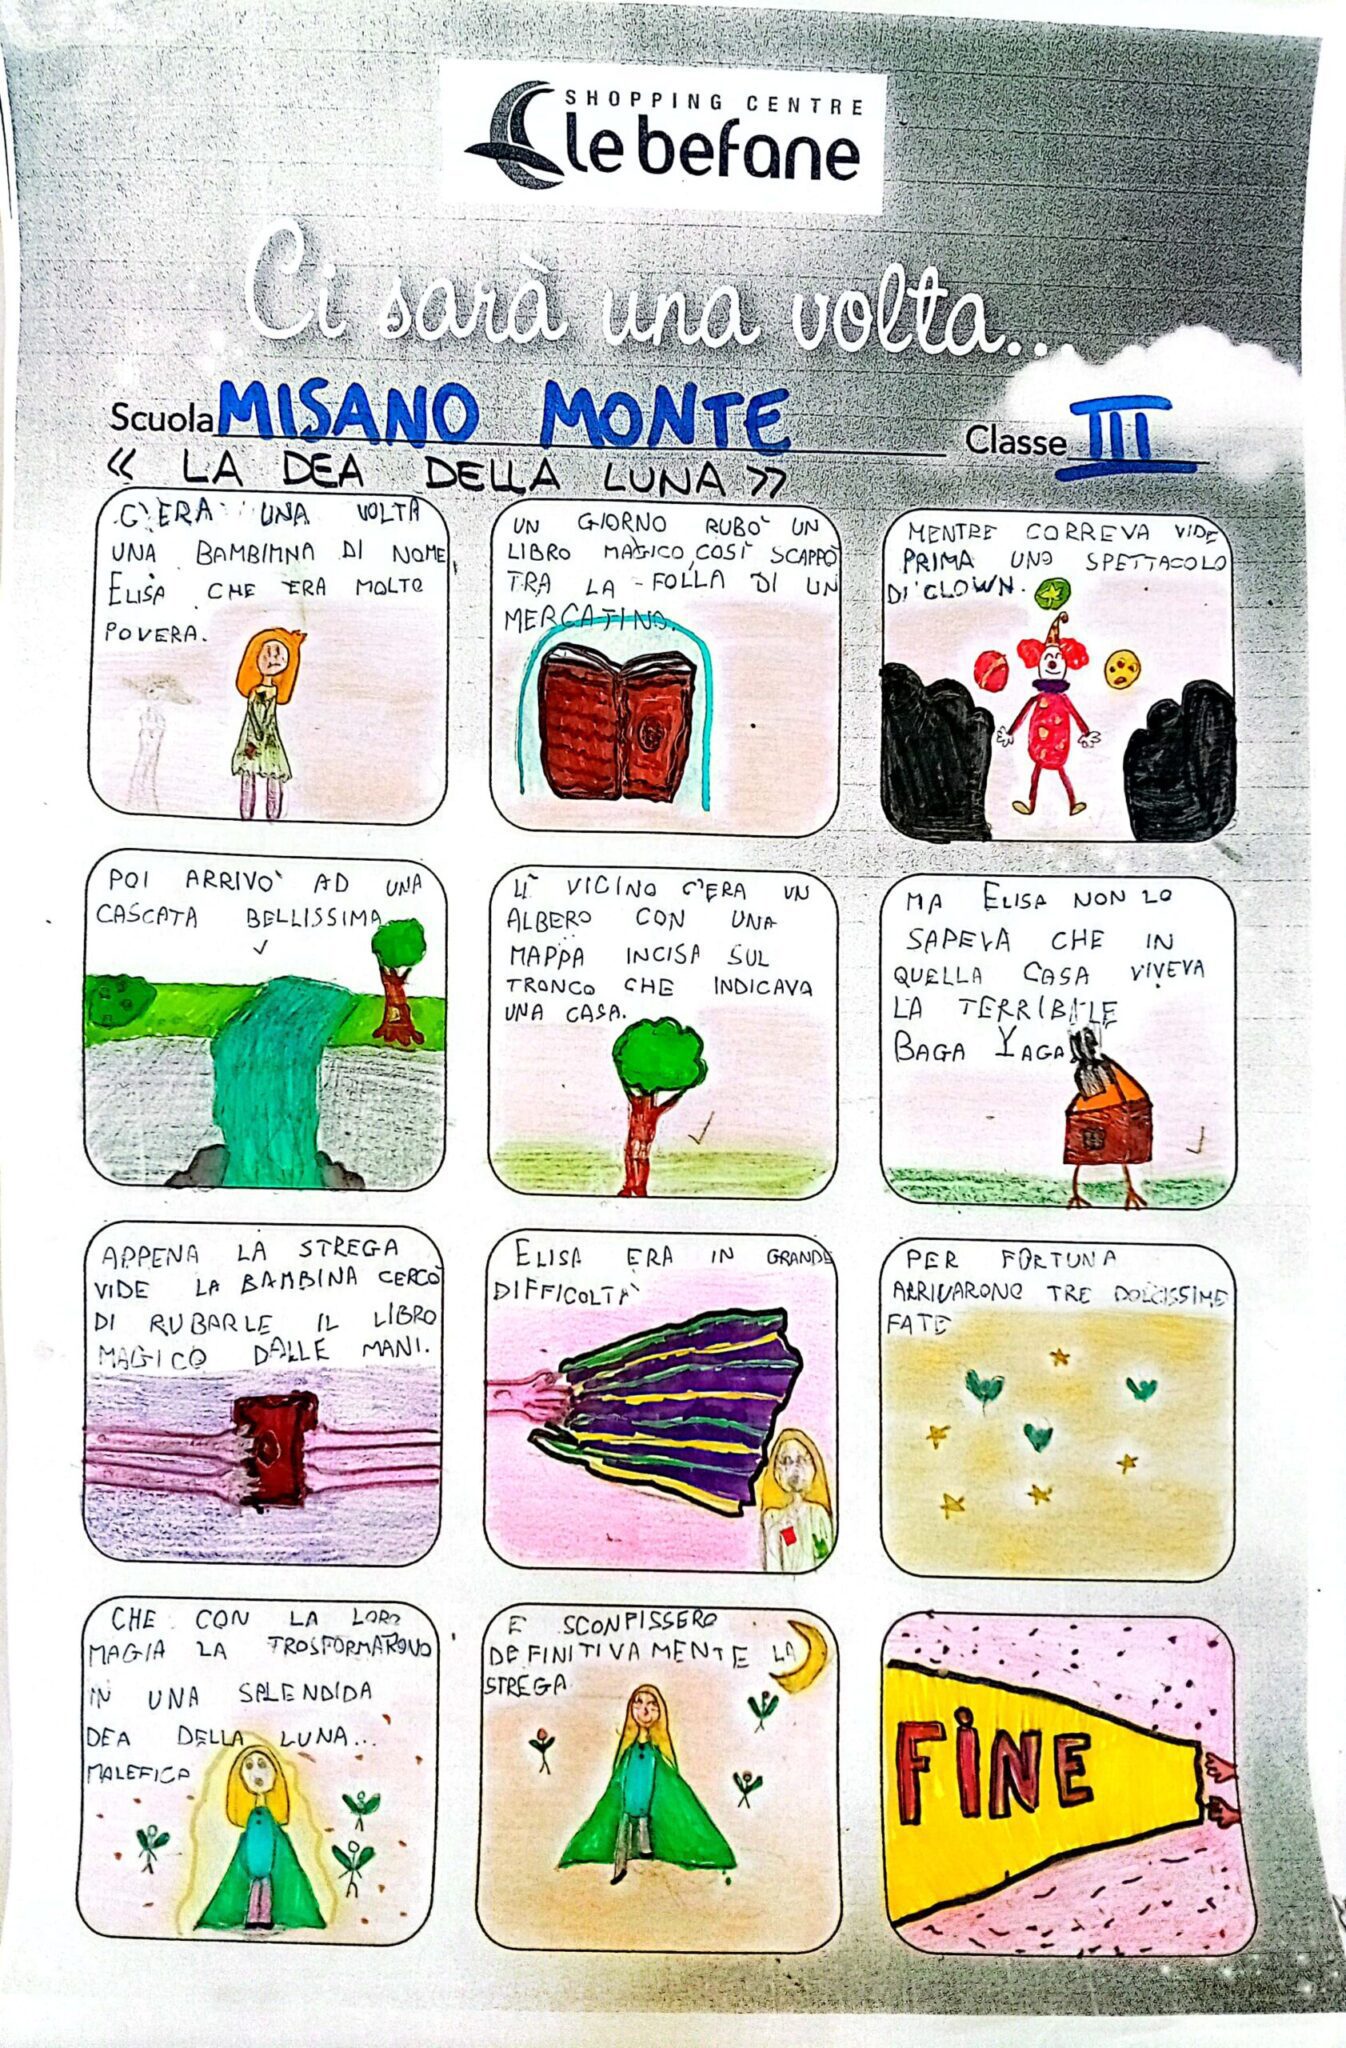 SHOPPING CENTRE
le befane
Ci sarà una volta...
Scuola MISANO MONTE
Classe III
« LA DEA DELLA LUNA »
C'ERA UNA VOLTA
UNA BAMBIMNA DI NOME
ELISA CHE ERA MOLTO
POVERA.
UN GIORNO RUBO' UN
LIBRO MAGICO, COSÌ SCAPPÒ
TRA LA FOLLA DI UN
MERCATINO.
MENTRE CORREVA VIDE
PRIMA UNO SPETTACOLO
DI CLOWN.
POI ARRIVO' AD UNA
CASCATA BELLISSIMA
LÌ VICINO C'ERA UN
ALBERO CON UNA
MAPPA INCISA SUL
TRONCO CHE INDICAVA
UNA CASA.
MA ELISA NON LO
SAPEVA CHE IN
QUELLA CASA VIVEVA
LA TERRIBILE
BAGA YAGA
APPENA LA STREGA
VIDE LA BAMBINA CERCÒ
DI RUBARLE IL LIBRO
MAGICO DALLE MANI.
ELISA ERA IN GRANDE
DIFFICOLTA'
PER FORTUNA
ARRIVARONO TRE DOLCISSIME
FATE
CHE CON LA LORO
MAGIA LA TROSFORMARONO
IN UNA SPLENDIDA
DEA DELLA LUNA...
MALEFICA
E SCONFISSERO
DEFINITIVAMENTE LA
STREGA
FINE